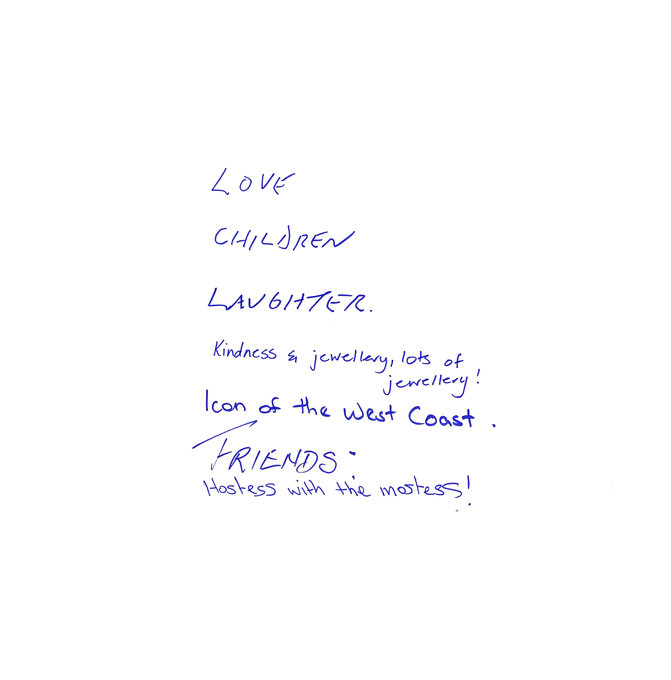 LOVE
CHILDREN
LAUGHTER.
Kindness & jewellery, lots of
jewellery!
Icon of the West Coast.
FRIENDS:
Hostess with the mostess!